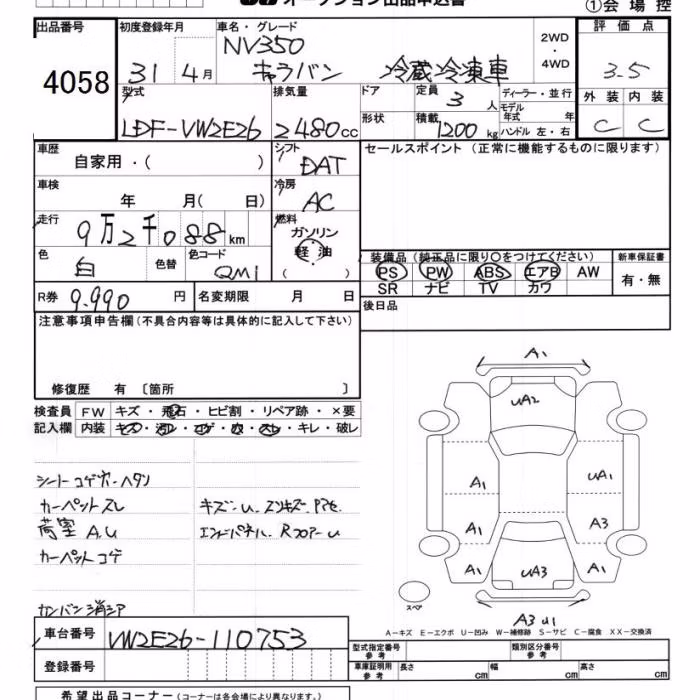 オークション出品申込書
①会場控
出品番号
4058
初度登録年月
31 4月
車名・グレード
NV350
キャラバン 冷蔵冷凍車
2WD
・
4WD
評価点
3.5
外装 内装
C C
型式
LDF-VW2E26
排気量
2480cc
ドア
形状
定員
3人
積載
1200kg
ディーラー・並行
モデル年式 年
ハンドル 左・右
車歴
自家用・( )
シフト
DAT
セールスポイント (正常に機能するものに限ります)
車検
年 月( 日)
冷房
AC
走行
9万2千088km
燃料
ガソリン
軽油
( )
色
白
色替
色コード
QM1
装備品 (純正品に限り○をつけてください)
PS PW ABS エアB AW
SR ナビ TV カワ
新車保証書
有・無
R券 9.990円
名変期限 月 日
後日品
注意事項申告欄 (不具合内容等は具体的に記入して下さい)
修復歴 有 〔箇所 〕
検査員記入欄
FW キズ・飛石・ヒビ割・リペア跡・×要
内装 キズ・汚レ・コゲ・穴・スレ・キレ・破レ
シートコゲ穴・ヘタリ
カーペットスレ
荷室 A.U
カーペットコゲ
カンバン消シア
キズ・U
エンドパネル、RフロアーU
A1
UA2
A1 UA1
A1 A3
A1 UA3 A1
スペア
A3 U1
A-キズ E-エクボ U-凹み W-補修跡 S-サビ C-腐食 XX-交換済
車台番号
VW2E26-110753
登録番号
型式指定番号 参考
類別区分番号 参考
車庫証明用 参考
長さ cm 幅 cm 高さ cm
希望出品コーナー (コーナーは各会場により異なります。)